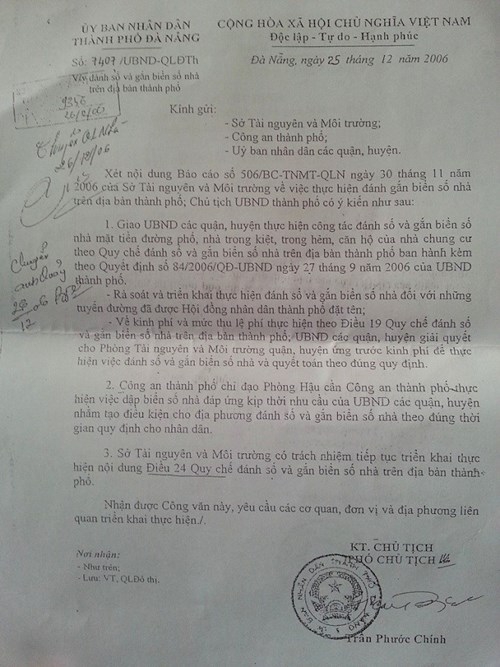 ỦY BAN NHÂN DÂN
THÀNH PHỐ ĐÀ NẴNG
CỘNG HÒA XÃ HỘI CHỦ NGHĨA VIỆT NAM
Độc lập - Tự do - Hạnh phúc
Số: 7407/UBND-QLĐTh
V/v đánh số và gắn biển số nhà
trên địa bàn thành phố
Đà Nẵng, ngày 25 tháng 12 năm 2006
Kính gửi:
- Sở Tài nguyên và Môi trường;
- Công an thành phố;
- Uỷ ban nhân dân các quận, huyện.
26/12/06
Xét nội dung Báo cáo số 506/BC-TNMT-QLN ngày 30 tháng 11 năm
2006 của Sở Tài nguyên và Môi trường về việc thực hiện đánh gắn biển số nhà
trên địa bàn thành phố; Chủ tịch UBND thành phố có ý kiến như sau:
1. Giao UBND các quận, huyện thực hiện công tác đánh số và gắn biển số
nhà mặt tiền đường phố, nhà trong kiệt, trong hẻm, căn hộ của nhà chung cư
theo Quy chế đánh số và gắn biển số nhà trên địa bàn thành phố ban hành kèm
theo Quyết định số 84/2006/QĐ-UBND ngày 27 tháng 9 năm 2006 của UBND
thành phố.
- Rà soát và triển khai thực hiện đánh số và gắn biển số nhà đối với những
tuyến đường đã được Hội đồng nhân dân thành phố đặt tên;
- Về kinh phí và mức thu lệ phí thực hiện theo Điều 19 Quy chế đánh số
và gắn biển số nhà trên địa bàn thành phố, UBND các quận, huyện giải quyết
cho Phòng Tài nguyên và Môi trường quận, huyện ứng trước kinh phí để thực
hiện việc đánh số và gắn biển số nhà và quyết toán theo đúng quy định.
Chuyển
anh Quảng
2. Công an thành phố chỉ đạo Phòng Hậu cần Công an thành phố thực
hiện việc dập biển số nhà đáp ứng kịp thời nhu cầu của UBND các quận, huyện
nhằm tạo điều kiện cho địa phương đánh số và gắn biển số nhà theo đúng thời
gian quy định cho nhân dân.
3. Sở Tài nguyên và Môi trường có trách nhiệm tiếp tục triển khai thực
hiện nội dung Điều 24 Quy chế đánh số và gắn biển số nhà trên địa bàn thành
phố.
Nhận được Công văn này, yêu cầu các cơ quan, đơn vị và địa phương liên
quan triển khai thực hiện./.
Nơi nhận:
- Như trên;
- Lưu: VT, QLĐô thị.
KT. CHỦ TỊCH
PHÓ CHỦ TỊCH
Trần Phước Chính